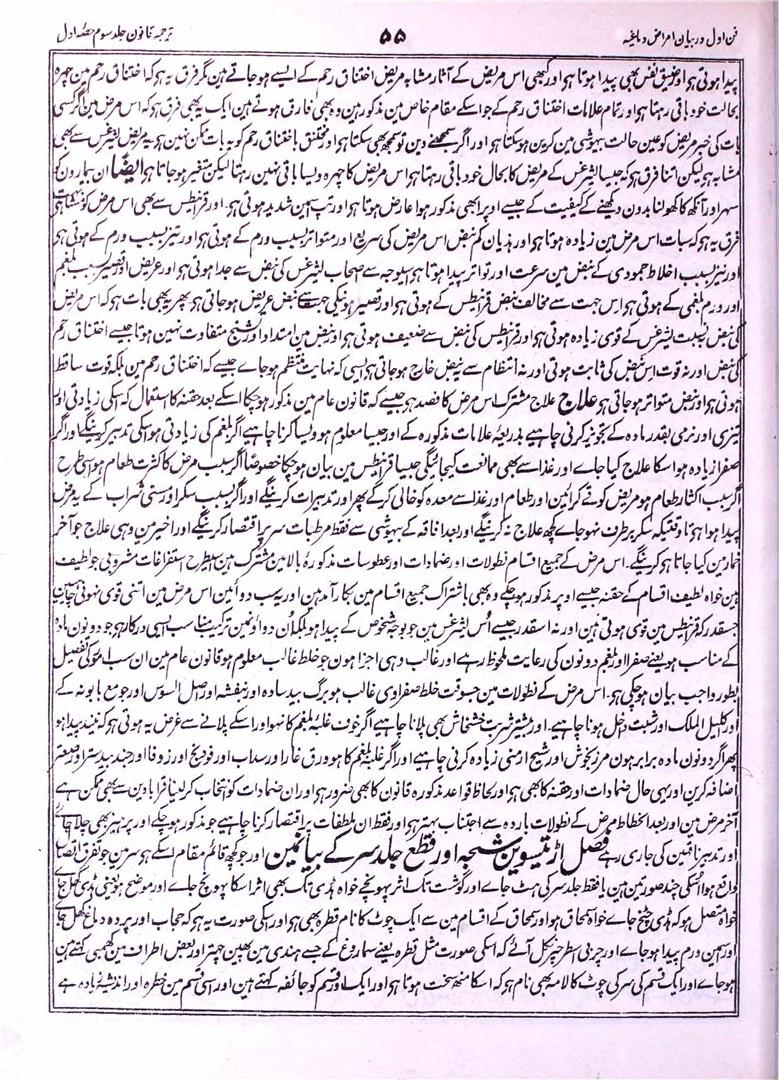 فن اول در بیان امراض دماغیہ ۵۵ ترجمہ قانون جلد سوم حصۂ اول
پیدا ہوتی ہو اور ضیق نفس بھی پیدا ہوتا ہو اور کبھی اس مریض کے آثار مشابہ مریض اختناق رحم کے ایسے ہو جاتے ہین مگر فرق یہ ہو کہ اختناق رحم مین چہرہ
بحالت خود باقی رہتا ہو اور تمام علامات اختناق رحم کے جو اسکے مقام خاص مین مذکور ہین وہ بھی فارق ہوتے ہین ایک یہ بھی فرق ہو کہ اس مرض مین اگر کسی
بات کی خبر مریض کو عین حالت بیہوشی مین کرین ہو سکتا ہو اور اگر سمجھنے دین تو سمجھ بھی سکتا ہو اور مختنق باختناق رحم کو یہ بات ممکن نہین ہو یہ مریض لیثرغس سے بھی
مشابہ ہو لیکن اتنا فرق ہو کہ جیسا لیثرغس کے مریض کا بحال خود باقی رہتا ہو اس مریض کا چہرہ ویسا باقی نہین رہتا لیکن متغیر ہو جاتا ہو ایضًا ان بیمارون کو
سہر اور آنکھ کا کھولنا بدون دیکھنے کے کیفیت کے جیسے اوپر ابھی مذکور ہوا عارض ہوتا ہو اور تپ بہین شدید ہوتی ہو۔ اور قرانیطس سے بھی اس مرض کو مشابہت
فرق یہ ہو کہ سبات اس مرض مین زیادہ ہوتا ہو اور ہذیان کم نبض اس مریض کی سریع اور متواتر بسبب ورم کے ہوتی ہو اور نیز بسبب ورم کے ہوتی ہو
اور نیز بسبب اخلاط جمودی کے نبض مین سرعت اور تواتر پیدا ہوتا ہو اسیوجہ سے اصحاب لیثرغس کی نبض سے جدا ہوتی ہو اور عریض اور قصیر بسبب بلغم
اور ورم بلغمی کے ہوتی ہو اس جہت سے مخالف نبض قرانیطس کے ہوتی ہو اور قصیر ہونیکی جہت سے نبض عریض ہو جاتی ہو پھر یہ بھی بات ہو کہ اس مریض
کی نبض بنسبت لیثرغس کے قوی زیادہ ہوتی ہو اور قرانیطس کی نبض سے ضعیف ہوتی ہو اور نبض مین امتداد اور تشنج متفاوت نہین ہوتا جیسے اختناق رحم
کی نبض اور نہ قوت اس نبض کی ثابت ہوتی اور نہ انتظام سے یہ نبض خارج ہو جاتی ہو ایسی کہ نہایت منتظم ہو جاے جیسے کہ اختناق رحم مین بلکہ قوت ساقط
ہوتی ہو اور نبض متواتر ہو جاتی ہو علاج علاج مشترک اس مرض کا فصد ہو جیسے کہ قانون عام مین مذکور ہو چکا اسکے بعد حقنہ کا استعمال کہ اسکی زیادتی اور
تیزی اور نرمی بقدر مادہ کے تجویز کرنی چاہیے بذریعۂ علامات مذکورہ کے اور جیسا معلوم ہو ویسا کرنا چاہیے اگر بلغم کی زیادتی ہو اسکی تدبیر کرینگے اور اگر
صفرا زیادہ ہو اسکا علاج کیا جاے اور غذا سے بھی ممانعت کیجائیگی جیسا قرانیطس مین بیان ہو چکا خصوصًا اگر سبب مرض کا کثرت طعام ہو اسی طرح
اگر سبب اکثار طعام ہو مریض کو قے کرائین اور طعام اور غذا سے معدہ کو خالی کر کے پھر اور تدبیرات کرینگے اور اگر بسبب سکر اور مستی شراب کے یہ مرض
پیدا ہوا ہو تا وقتیکہ سکر برطرف نہو جاے کچھ علاج نہ کرینگے اور بعد افاقہ کے بیہوشی سے فقط مرطبات سر پر اقتصار کرینگے اور اخیر مین وہی علاج جو آخر
خمار مین کیا جاتا ہو کرینگے۔ اس مرض کے جمیع اقسام نطولات اور ضمادات اور عطوسات مذکورۂ بالا مین مشترک ہین اسیطرح استفراغات مشروبی جو لطیف
ہین خواہ لطیف اقسام کے حقنہ جیسے اوپر مذکور ہو چکے وہ بھی باشتراک جمیع اقسام مین بکار آمد ہین اور یہ سب دوائین اس مرض مین اتنی قوی نہونی چاہیین
جسقدر کہ قرانیطس مین قوی ہوتی ہین اور نہ اسقدر جیسے اُس لیثرغس مین جو بوجہ شخوص کے پیدا ہو بلکہ اُن دواؤن مین ترکیب مناسب ایسی درکار ہو جو دونون مادہ
کے مناسب ہو یعنے صفرا اور بلغم دونون کی رعایت ملحوظ رہے اور غالب وہی اجزا ہون جو خلط غالب معلوم ہو قانون عام مین ان سب امور کی تفصیل
بطور واجب بیان ہو چکی ہو۔ اس مرض کے نطولات مین جسوقت خلط صفراوی غالب ہو برگ بید سادہ اور بنفشہ اور اصل السوس اور جو مع بابونہ کے
اور اکلیل الملک اور شبت داخل ہونا چاہیے۔ اور بیشتر شربت خشخاش بھی پلانا چاہیے اگر خوف غلبۂ بلغم کا نہو اور اسکے پلانے سے غرض یہ ہوتی ہو کہ نیند پیدا ہو
پھر اگر دونون مادہ برابر ہون مرزنجوش اور شیح ارمنی زیادہ کرنی چاہیے اور اگر غلبہ بلغم کا ہو ورق غار اور سداب اور فودنج اور زوفا اور جند بیدستر اور صعتر
اضافہ کرین اور یہی حال ضمادات اور حقنہ کا بھی ہو اور لحاظ قواعد مذکورہ قانون کا بھی ضرور ہو اور ان ضمادات کو انتخاب کر لینا قرابادین سے بھی ممکن ہے
آخر مرض مین اور بعد انحطاط مرض کے نطولات باردہ سے اجتناب بہتر ہو اور فقط ان ملطفات پر اقتصار کرنا چاہیے جو مذکور ہو چکے اور پرہیز بھی چلا جائے
اور تدبیر ناقہین کی جاری رہے فصل اڑتیسوین شجہ اور قطع جلد سر کے بیانمین اور جو کچھ قائم مقام اسکے ہو سر مین جو تفرق اتصال
واقع ہو اُسکی چند صورتین ہین یا فقط جلد سر کی ہٹ جاے اور گوشت تک اثر پہونچے خواہ ہڈی تک بھی اثر اسکا پہونچ جاے اور موضح ہو یعنی ہڈی کھل جائے
خواہ متصل ہو کہ ہڈی چٹخ جاے خواہ سمحاق ہو اور سمحاق کے اقسام مین سے ایک چوٹ کا نام قطرہ بھی ہو اور اسکی صورت یہ ہو کہ حجاب اور پردہ دماغ کھل جائے
اور اسمین ورم پیدا ہو جاے اور چربی اسطرح نکل آئے کہ اسکی صورت مثل قطرہ یعنے سماروغ کے جسے ہندی مین بھپین چھتر اور بعض اطراف مین کھمبی کہتے ہین
ہو جاے اور ایک قسم کی سر کی چوٹ کا لامہ بھی نام ہو کہ اسکا منھ سخت ہوتا ہو اور ایک اور قسم کو جائفہ کہتے ہین اور اسی قسم مین خطرہ اور اندیشہ زیادہ ہے